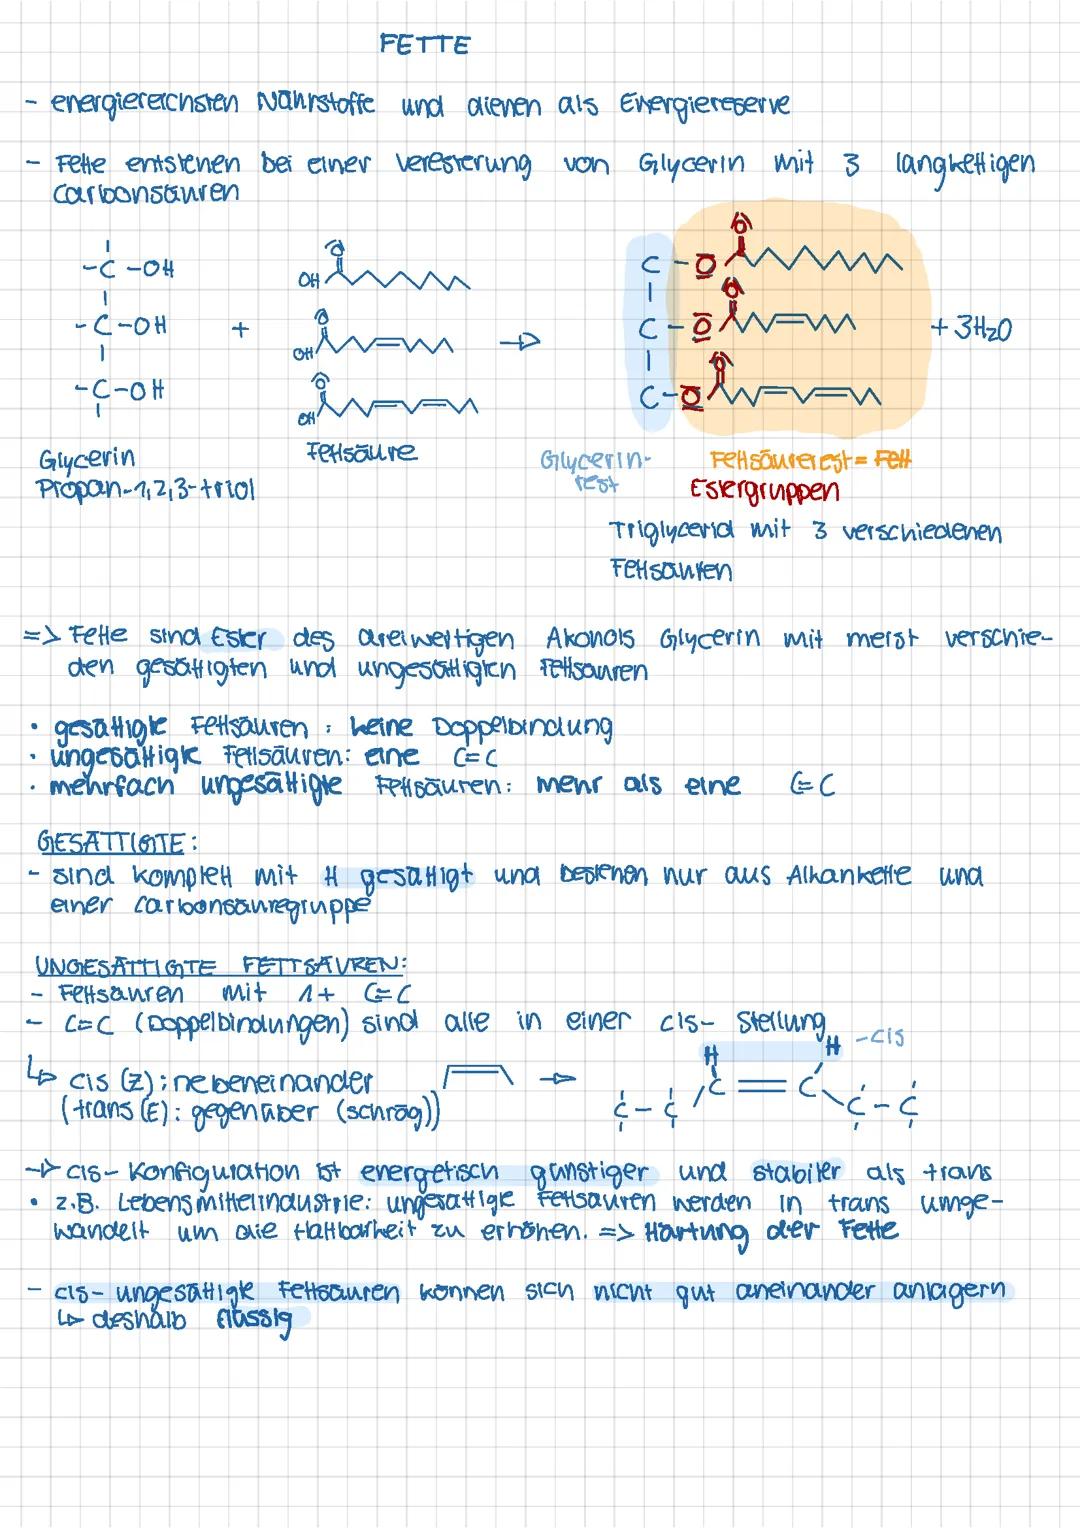 FETTE
- energiereichsten Nährstoffe und dienen als Energiereserve
- Fette entstehen bei einer Veresterung von Glycerin mit 3 langkettigen
Carbonsäuren
-C-OH
-C-OH
-C-OH
+
OH
OH
OH
C-O
C-O
C-O
+ 3H₂O
Glycerin
Propan-1,2,3-triol
Fettsäure
Glycerin-
rest
Fettsäurerest = Fett
Estergruppen
Triglycerid mit 3 verschiedenen
Fettsäuren
=> Fette sind Ester des dreiwertigen Akohols Glycerin mit meist verschie-
den gesättigten und ungesättigten Fettsäuren
• gesättigte Fettsäuren: keine Doppelbindung
• ungesättigte Fettsäuren: eine C=C
• mehrfach ungesättigte Fettsäuren: mehr als eine C=C
GESÄTTIGTE:
- sind komplett mit H gesättigt und bestehen nur aus Alkankette und
einer Carbonsäuregruppe
UNGESÄTTIGTE FETTSÄUREN:
- Fettsäuren mit 1+ C=C
- C=C (Doppelbindungen) sind alle in einer cis- Stellung
↳ cis (z): nebeneinander
(trans (E): gegenüber (schräg))
H H -cis
C-C C=C C-C
→ cis-Konfiguration ist energetisch günstiger und stabiler als trans
• z.B. Lebensmittelindustrie: ungesättigte Fettsäuren werden in trans umge-
wandelt um die Haltbarkeit zu erhöhen. => Härtung der Fette
- cis-ungesättigte Fettsäuren können sich nicht gut aneinander anlagern
↳ deshalb flüssig